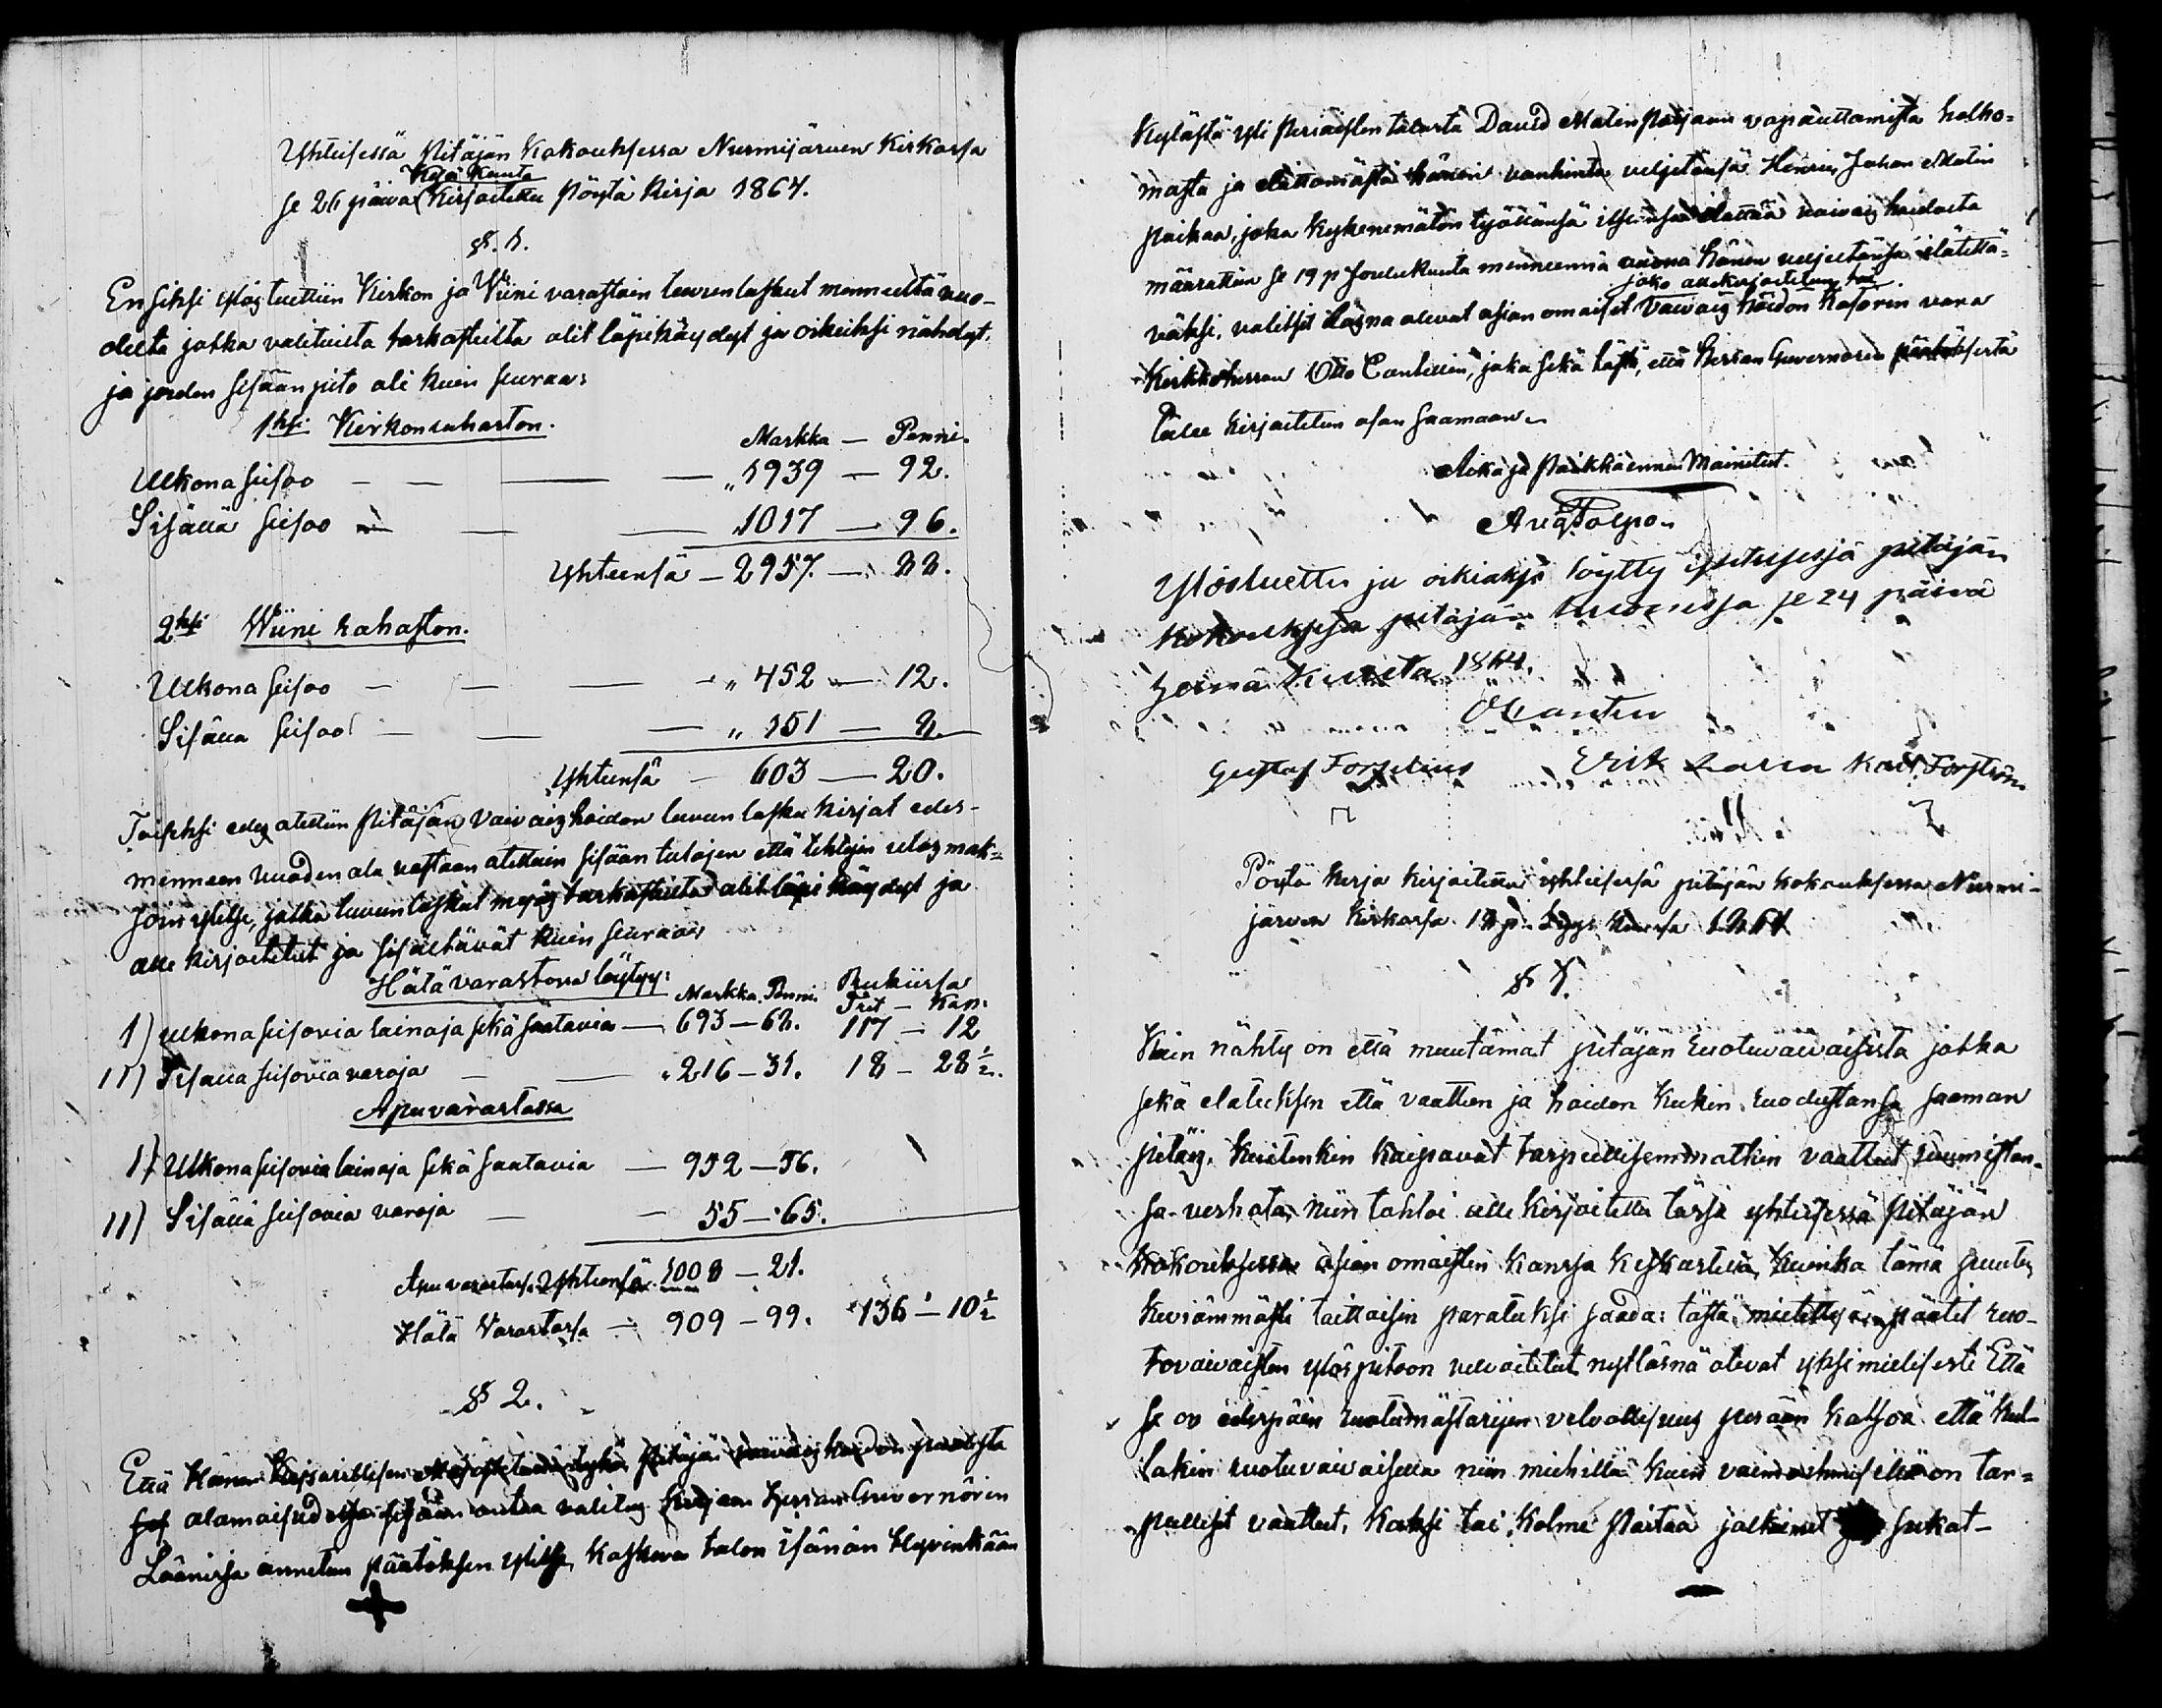 Yhteisessä Pitäjän Kokouksessa Nurmijärven Kirkossa
Kesä Kuuta
se 26 päivä Kirjoitettu Pöytä Kirja 1864.
§. 1.
Ensiksi ylös luettiin Kirkon ja Viini varastoin luvunlaskut menneeltä vuo-
delta jotka valituilta tarkasteilta olit läpikäydyt ja oikeiksi nähdyt,
ja joiden sisäänpito oli kuin seuraa:
1ksi Kirkon rahaston.
Markka — Penni.
Ulkona seisoo — — — — „ 1939 — 92.
Sisällä seisoo — — — 1017 — 96.
Yhteensä — 2957. — 88.
2ksi Wiini rahaston.
Ulkona seisoo — — — — „ 452 — 12.
Sisällä seisoo — — — „ 151 — 8.
Yhteensä — 603 — 20.
Toiseksi edes otettiin Pitäjän Vaivaishoidon luvun lasku kirjat edes-
menneen vuoden ala vastaan otettuin sisään tulojen että tehtyin ulosmak-
soin ylitse, jotka luvunlaskut myös tarkasteilta olit läpi käydyt ja
alle kirjoitetut ja sisältävät kuin seuraa:
Hätävarastossa löytyy:
Markka. Penni. Rukiissa
Trit — Kap:
1) ulkona seisovia lainoja sekä saatavia — 693 — 68. 117 — 12
11) Sisällä seisovia varoja — — „ 216 — 31. 18 — 28 1/2.
Apuvarastossa
1) Ulkona seisovia lainoja sekä saatavia — 952 — 56.
11) Sisällä seisovia varoja — — 55 — 65.
Apuvarastossa Yhteensä 1008 — 21.
Hätä Varastossa — 909 — 99. 136 — 10 1/2
§ 2.
Että Hänen Keisarillisen Majestetinsä tykö Pitäjän vaivais hoidon puolesta
alamaisudessa sisään antaa valitus kirjan Herran Guvernörin
Läänissä annetun päätöksen ylitse, Kaskelan talon isännän Hyvinkään
Kylästä yli Periaisten talosta David Matin Pojan vapauttamista holho-
masta ja elättamästä hänen vanhinta veljeänsä Henric Johan Matin
poikaa, joka kykenemätön työllänsä itseänsä elättää vaivais hoidosta
määrättiin se 19 p Joulukuuta menneennä vuonna Hänen veljeltänsä elätettä-
joko allekirjoitetun tai
väksi, valitsit läsna olevat asian omaiset Vaivais hoidon Kasörin vara
Kirkkoherran Otto Cantellin, joka sekä tästä, että Herran Guvernörin päätöksestä
tulee kirjoitetun osan saamaan.
Aika ja Paikka ennen Mainitut.
Aug Tolpo.
Ylösluettu ja oikiaksi löytty yhteisessä pitäjän
kokouksessa pitäjän tuvassa se 24 päivä
Heinä Kuuta 1864.
O Cantell
Gustaf Forselius Erik Karl Forström
Pöytä Kirja kirjoitettu yhteisessä pitäjän kokouksessa Nurmi-
järven Kirkossa 18 p. Syys Kuussa 1864
§ 1.
Kuin nähty on että muutamat pitäjän ruotuvaivaisista jotka
sekä elatuksen että vaatteen ja hoidon kukin ruodustansa saaman
pitäis. Kuitenkin kaipavat tarpeellisemmatkin vaatteet ruumistan-
sa verhota, niin tahtoi alle kirjoitettu tässä yhteisessä Pitäjän
kokouksessa asian omaisten kanssa keskustella, kuinka tämä puutos
keviämmästi taittaisin paratuksi saada: tästä mietittyä, päätit ruo-
tuvaivaisten ylöspitoon velvoitetut nyt läsnä olevat yksimielisesti Että
se on edespäin ruotumästarijen velvollisuus perään katsoa että kul-
lakin ruotuvaivaisella niin miehillä kuin vaimoihmisellä on tar-
peelliset vaatteet, kaksi tai kolme Paitaa jalkineet sukat-